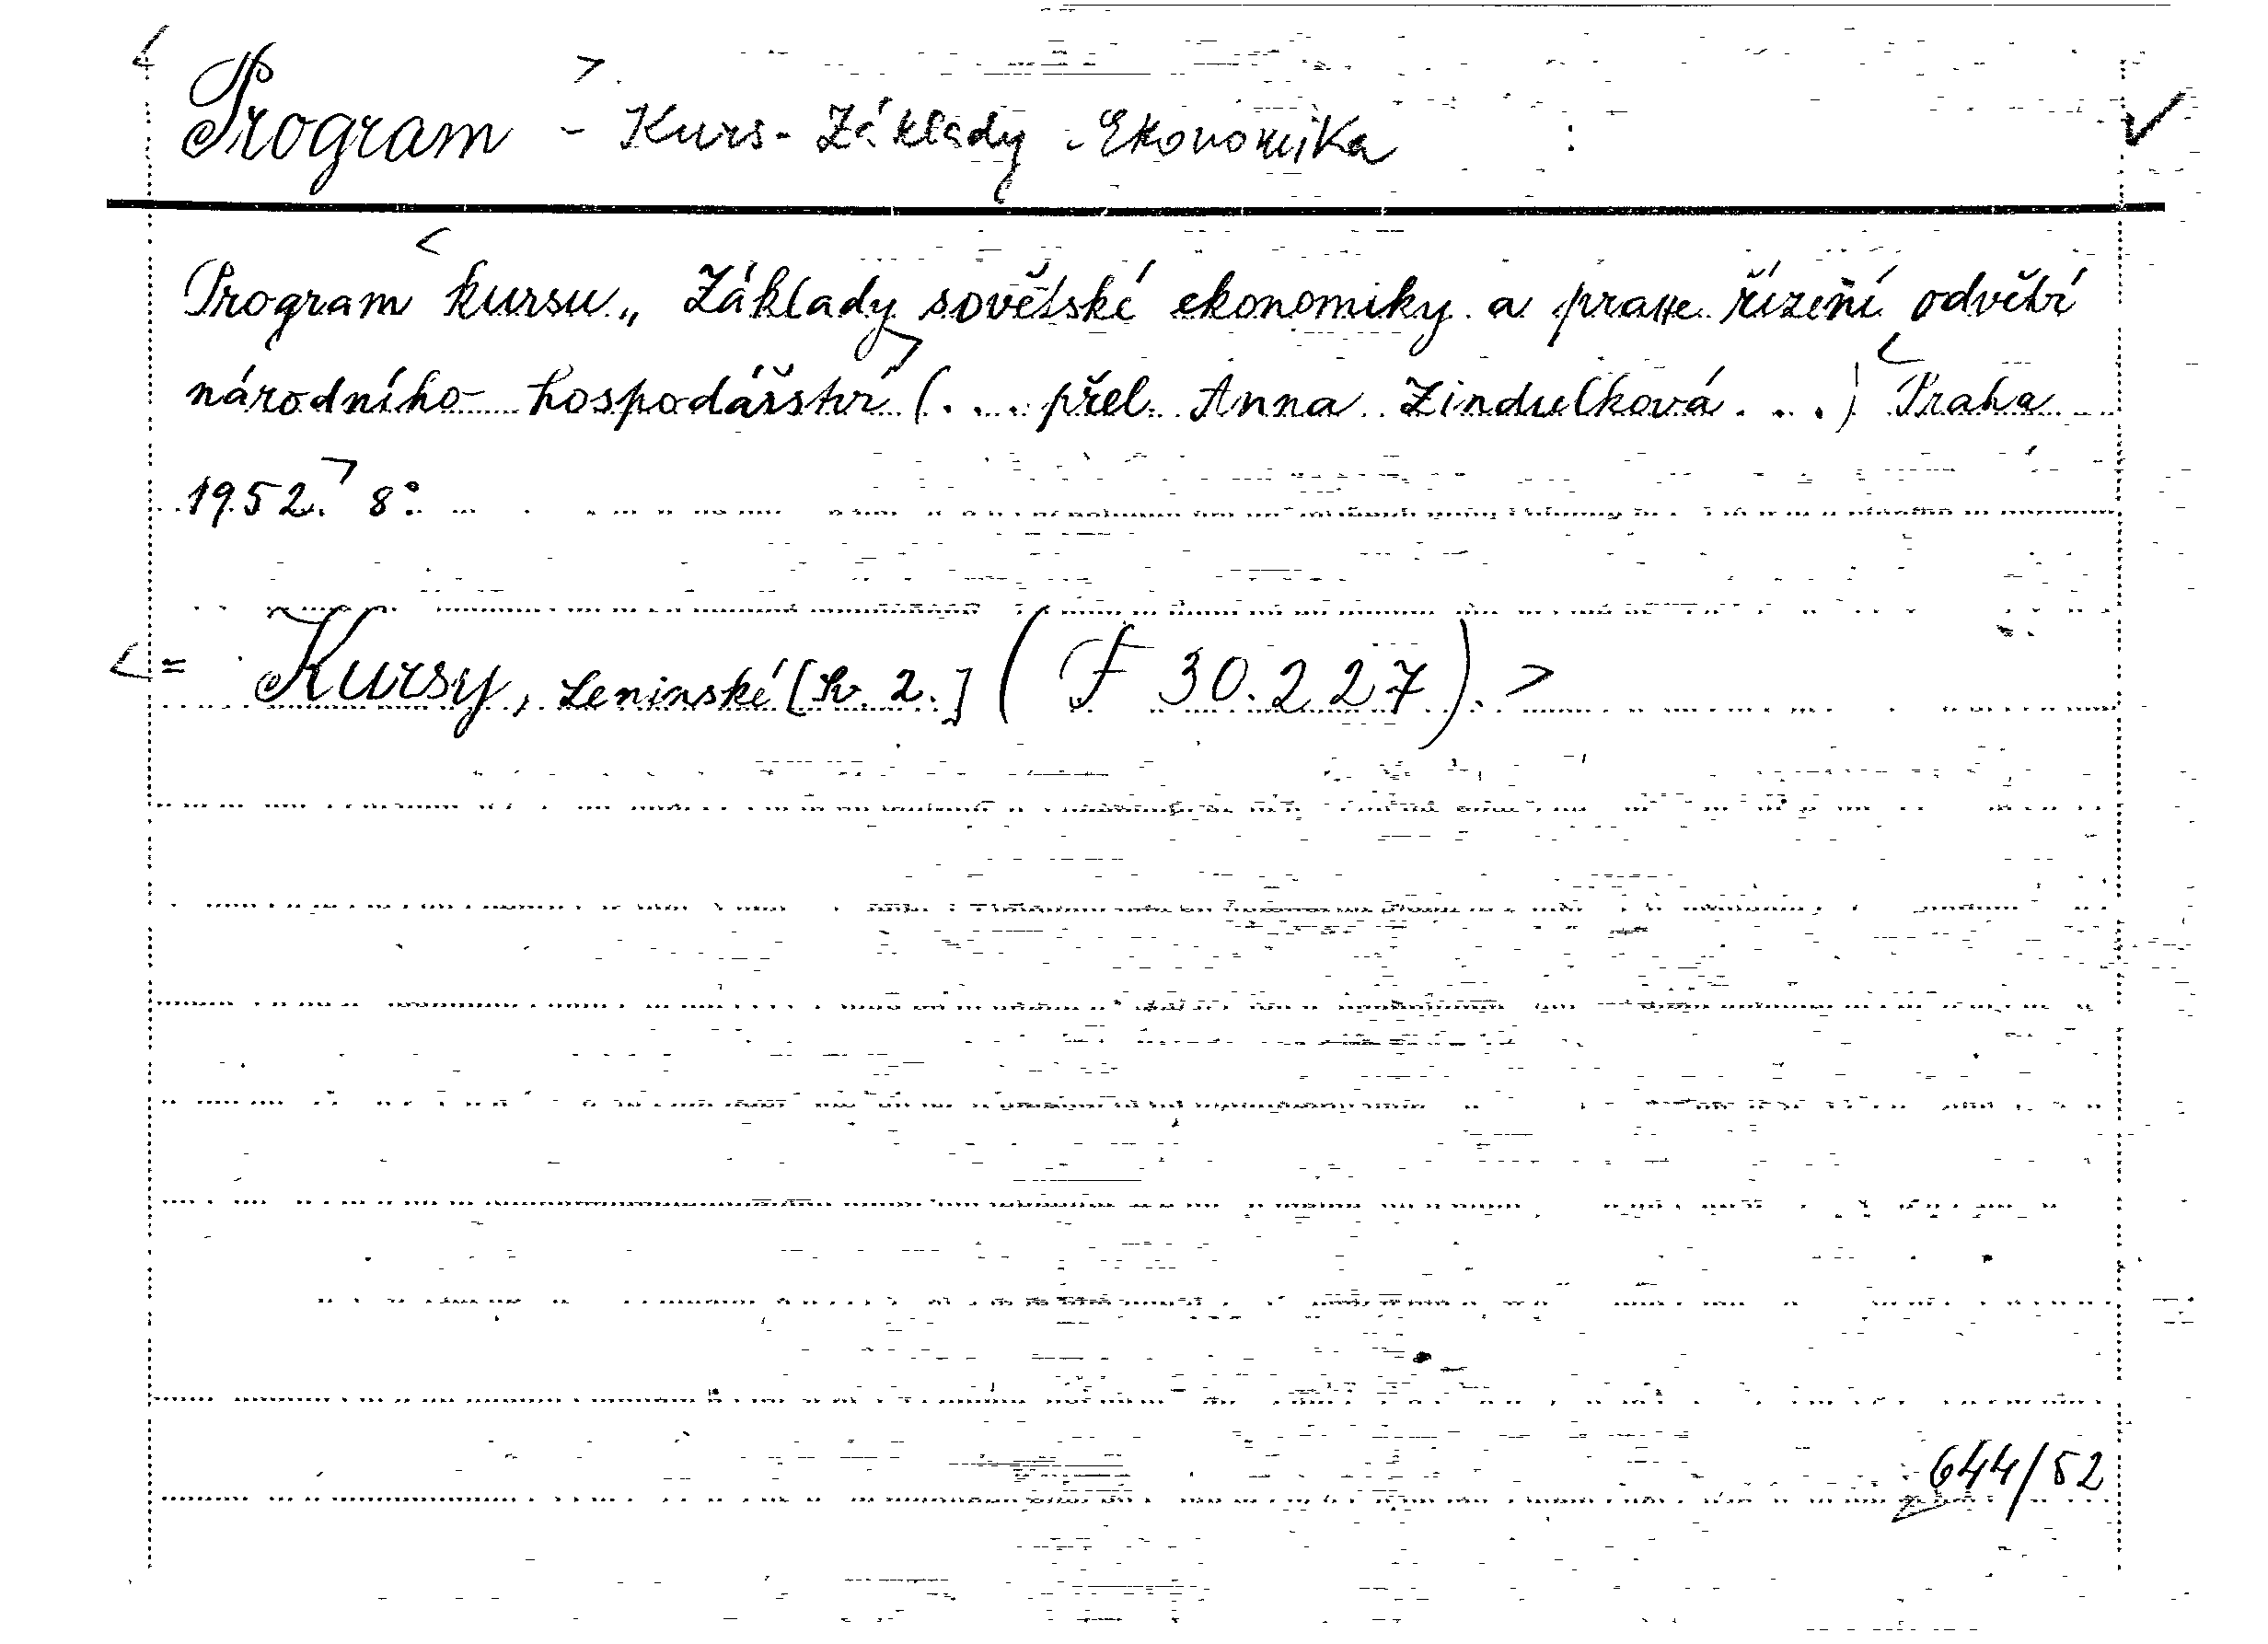 Program - Kurs - Základy - Ekonomika :
Program kursu „ Základy sovětské ekonomiky a praxe řízení odvětví
národního hospodářství (. . . přel. Anna Zindulková . . .) Praha
1952. 8°.
= Kursy, Leninské [Sv. 2.] (F 30.227).
644/52